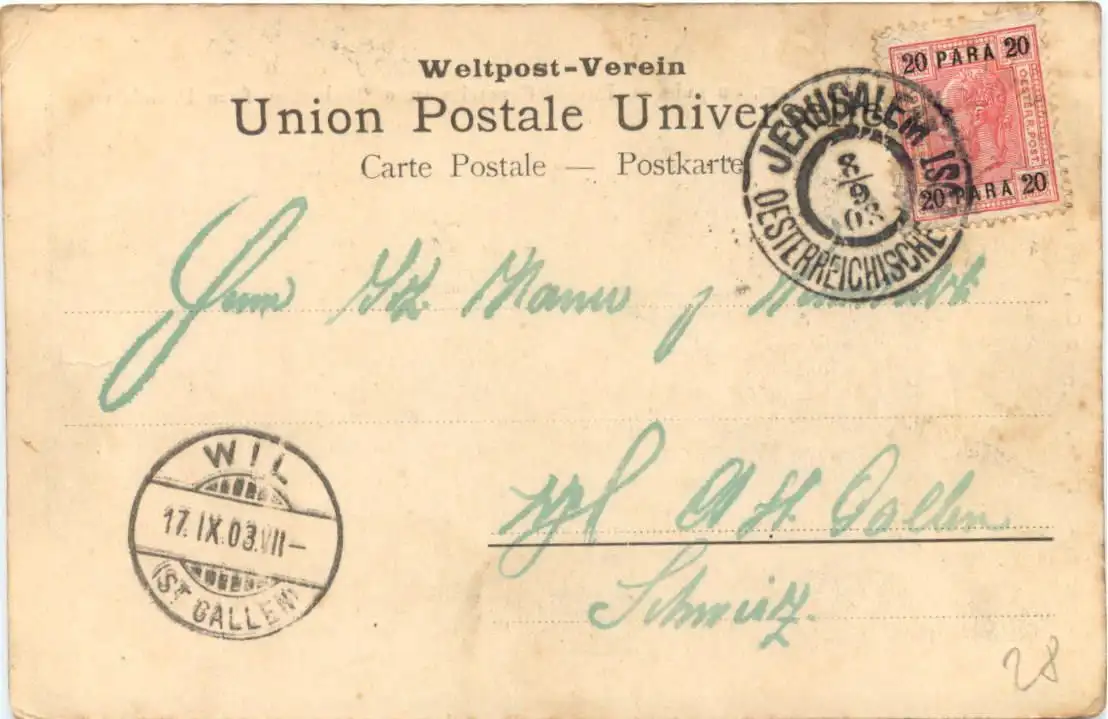 Weltpost-Verein
Union Postale Universelle
Carte Postale — Postkarte
20 PARA 20
OESTERR. POST.
20 PARA 20
JERUSALEM
8/9
03
OESTERREICHISCHE
Herrn
WIL
17. IX. 03. VII –
(ST. GALLEN)
Ct. St. Gallen
Schweiz.
28